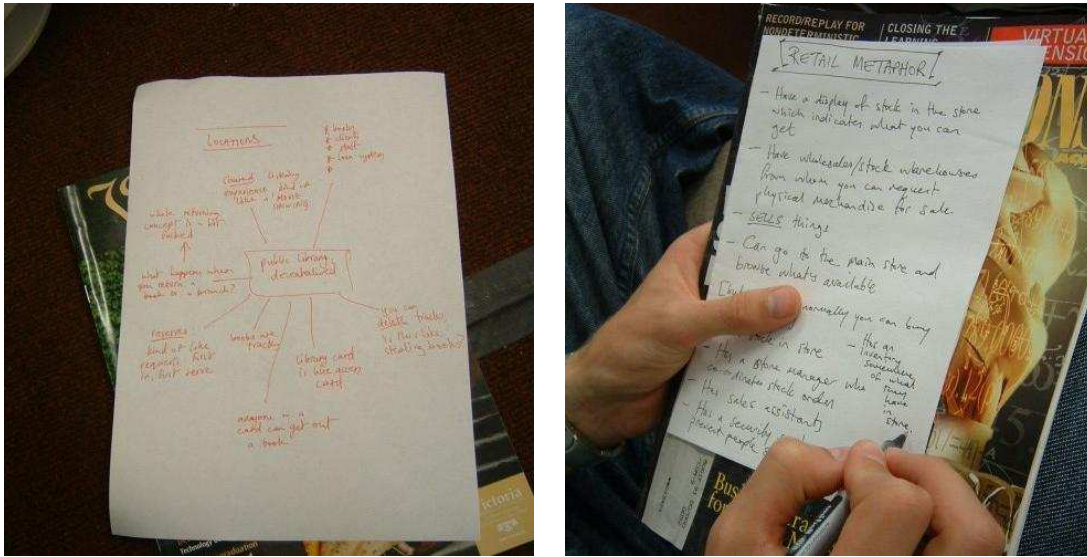 LOCATIONS
* books
* clients
* staff
* loan system
*
shared listening
experience kind of
like a
whole returning
concept is a bit
public library
decentralised
What happens when
you return a
book to a branch?
reserves
kind of like
requests first
in, first serve
books are
tracks
Library card
is like access
card
you can
delete tracks
is this like
stealing books?
anyone w a
card can get out
a book
Victoria
RECORD/REPLAY FOR
NONDETERMINISTIC
CLOSING THE
LEARNING
VIRTUA
RETAIL METAPHOR
- Have a display of stock in the store
which indicates what you can
get
- Have wholesales/stock warehouses
from whom you can request
physical merchandise for sale
- SELLS things
- Can go to the main store and
browse what's available
normally you can buy
stock in store
- Has a store manager who
co-ordinates stock orders
- Has sales assistants
- Has a security
prevent people
- Has an
inventory
somewhere
of what
they
have
in
store.
Bus
for